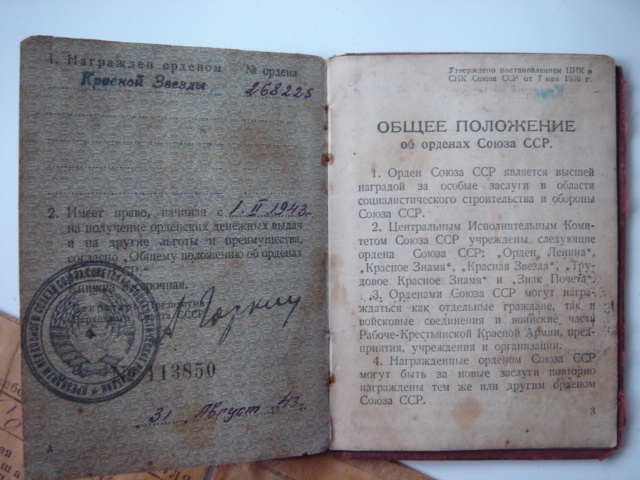 1. Награжден орденом № ордена
Красной Звезды 268225
2. Имеет право, начиная с 1. II 1943
на получение орденских денежных выдач
и на другие льготы и преимущества,
согласно „Общему положению об орденах
Союза ССР“.
Книжка бессрочная.
Секретарь Президиума
Верховного Совета СССР
А Горкин
№ 113850
31 Август 1943 г.
А
Утверждено постановлением ЦИК и
СНК Союза ССР от 7 мая 1936 г.
ОБЩЕЕ ПОЛОЖЕНИЕ
об орденах Союза ССР.
1. Орден Союза ССР является высшей
наградой за особые заслуги в области
социалистического строительства и обороны
Союза ССР.
2. Центральным Исполнительным Коми-
тетом Союза ССР учреждены следующие
ордена Союза ССР: „Орден Ленина“,
„Красное Знамя“, „Красная Звезда“, „Тру-
довое Красное Знамя“ и „Знак Почета“.
3. Орденами Союза ССР могут награ-
ждаться как отдельные граждане, так и
войсковые соединения и воинские части
Рабоче-Крестьянской Красной Армии, пред-
приятия, учреждения и организации.
4. Награжденные орденом Союза ССР
могут быть за новые заслуги повторно
награждены тем же или другим орденом
Союза ССР.
3